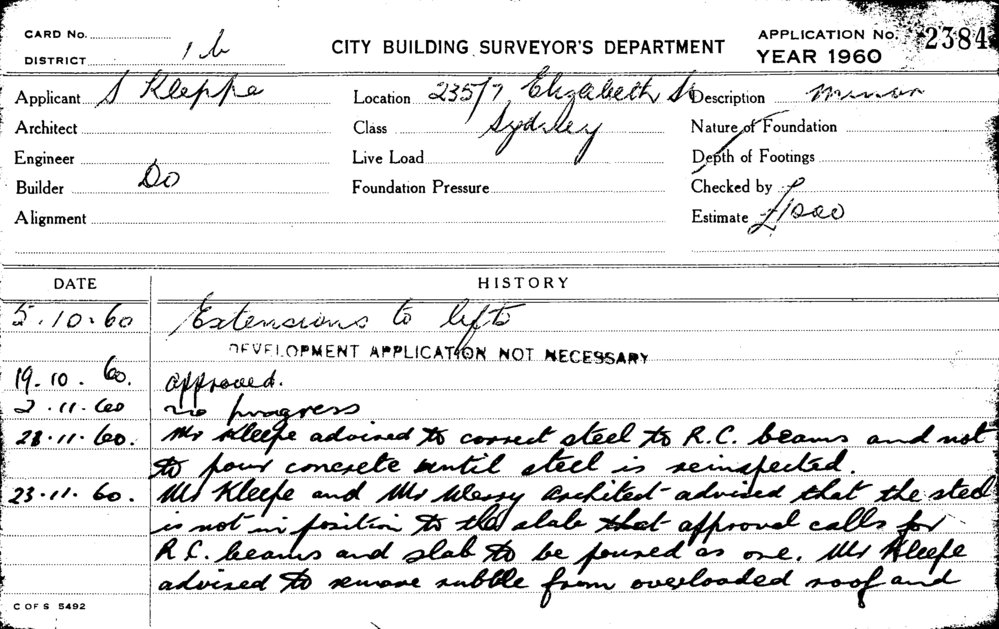 CARD No.
DISTRICT 1 b
CITY BUILDING SURVEYOR'S DEPARTMENT
APPLICATION No. 2384
YEAR 1960
Applicant S Kleppe
Location 235/7 Elizabeth St
Description minor
Architect
Class Sydney
Nature of Foundation
Engineer
Live Load
Depth of Footings
Builder Do
Foundation Pressure
Checked by
Alignment
Estimate £1500
DATE HISTORY
5.10.60 Extensions to lifts
DEVELOPMENT APPLICATION NOT NECESSARY
19.10.60. approved.
2.11.60 no progress
23.11.60. Mr Kleepe advised to correct steel to R.C. beams and not
to pour concrete until steel is reinspected.
23.11.60. Mr Kleepe and Mr architect advised that the steel
is not in position to the slab that approval calls for
R.C. beams and slab to be poured as one. Mr Kleepe
advised to remove rubble from overloaded roof and
C OF S 5492